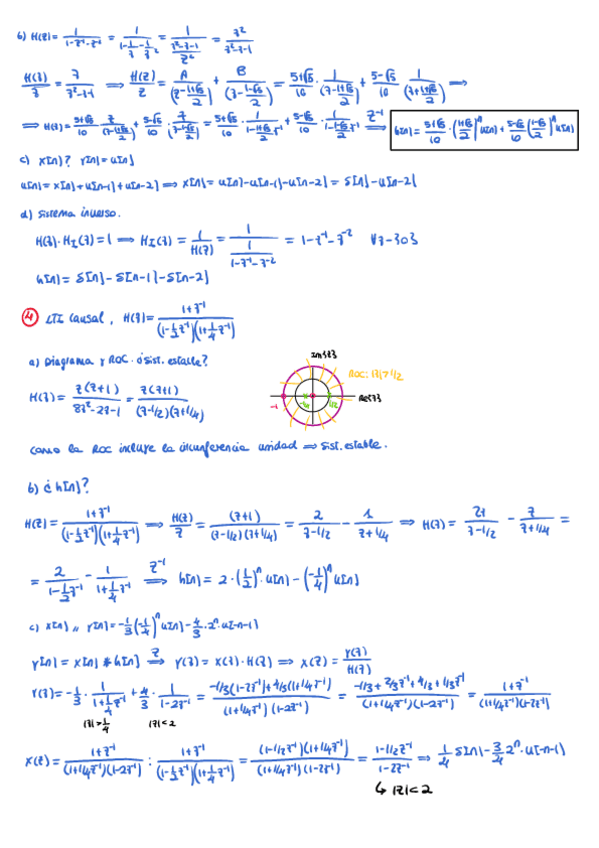 b) H(z) = 1/(1-z⁻¹-z⁻²) = 1/(1-1/z-1/z²) = 1/((z²-z-1)/z²) = z²/(z²-z-1)
H(z)/z = z/(z²-z-1) ⟹ H(z)/z = A/(z-(1+√5)/2) + B/(z-(1-√5)/2) = (5+√5)/10 · 1/(z-(1+√5)/2) + (5-√5)/10 · 1/(z+(1+√5)/2) ⟹
⟹ H(z) = (5+√5)/10 · z/(z-(1+√5)/2) + (5-√5)/10 · z/(z-(1-√5)/2) = (5+√5)/10 · 1/(1-(1+√5)/2 z⁻¹) + (5-√5)/10 · 1/(1-(1-√5)/2 z⁻¹) ⟹ z⁻¹ h[n] = (5+√5)/10 · ((1+√5)/2)ⁿ u[n] + (5-√5)/10 ((1-√5)/2)ⁿ u[n]
c) x[n]? y[n] = u[n]
u[n] = x[n] + u[n-1] + u[n-2] ⟹ x[n] = u[n] - u[n-1] - u[n-2] = δ[n] - u[n-2]
d) Sistema inverso.
H(z) · H_I(z) = 1 ⟹ H_I(z) = 1/H(z) = 1/(1/(1-z⁻¹-z⁻²)) = 1 - z⁻¹ - z⁻² ∀z-{0}
h[n] = δ[n] - δ[n-1] - δ[n-2]
④ LTI Causal, H(z) = (1+z⁻¹)/((1-1/2 z⁻¹)(1+1/4 z⁻¹))
a) Diagrama y ROC. ¿Sist. estable?
Im{z}
ROC: |z|>1/2
Re{z}
-1
-1/4
1/2
H(z) = z(z+1)/(8z²-2z-1) = z(z+1)/((z-1/2)(z+1/4))
Como la ROC incluye la circunferencia unidad ⟹ Sist. estable.
b) ¿h[n]?
H(z) = (1+z⁻¹)/((1-1/2 z⁻¹)(1+1/4 z⁻¹)) ⟹ H(z)/z = (z+1)/((z-1/2)(z+1/4)) = 2/(z-1/2) - 1/(z+1/4) ⟹ H(z) = 2z/(z-1/2) - z/(z+1/4) =
= 2/(1-1/2 z⁻¹) - 1/(1+1/4 z⁻¹) ⟹ z⁻¹ h[n] = 2 · (1/2)ⁿ · u[n] - (-1/4)ⁿ u[n]
c) x[n] // y[n] = -1/3 (-1/4)ⁿ u[n] - 4/3 · 2ⁿ · u[-n-1]
y[n] = x[n] * h[n] ⟹ z Y(z) = X(z) · H(z) ⟹ X(z) = Y(z)/H(z)
Y(z) = -1/3 · 1/(1+1/4 z⁻¹) + 4/3 · 1/(1-2z⁻¹) = (-1/3(1-2z⁻¹) + 4/3(1+1/4 z⁻¹))/((1+1/4 z⁻¹)(1-2z⁻¹)) = (-1/3 + 2/3 z⁻¹ + 4/3 + 1/3 z⁻¹)/((1+1/4 z⁻¹)(1-2z⁻¹)) = (1+z⁻¹)/((1+1/4 z⁻¹)(1-2z⁻¹))
|z|>1/4 |z|<2
X(z) = (1+z⁻¹)/((1+1/4 z⁻¹)(1-2z⁻¹)) : (1+z⁻¹)/((1-1/2 z⁻¹)(1+1/4 z⁻¹)) = (1-1/2 z⁻¹)(1+1/4 z⁻¹)/((1+1/4 z⁻¹)(1-2z⁻¹)) = (1-1/2 z⁻¹)/(1-2z⁻¹) ⟹ 1/4 δ[n] - 3/4 2ⁿ · u[-n-1]
↳ |z|<2